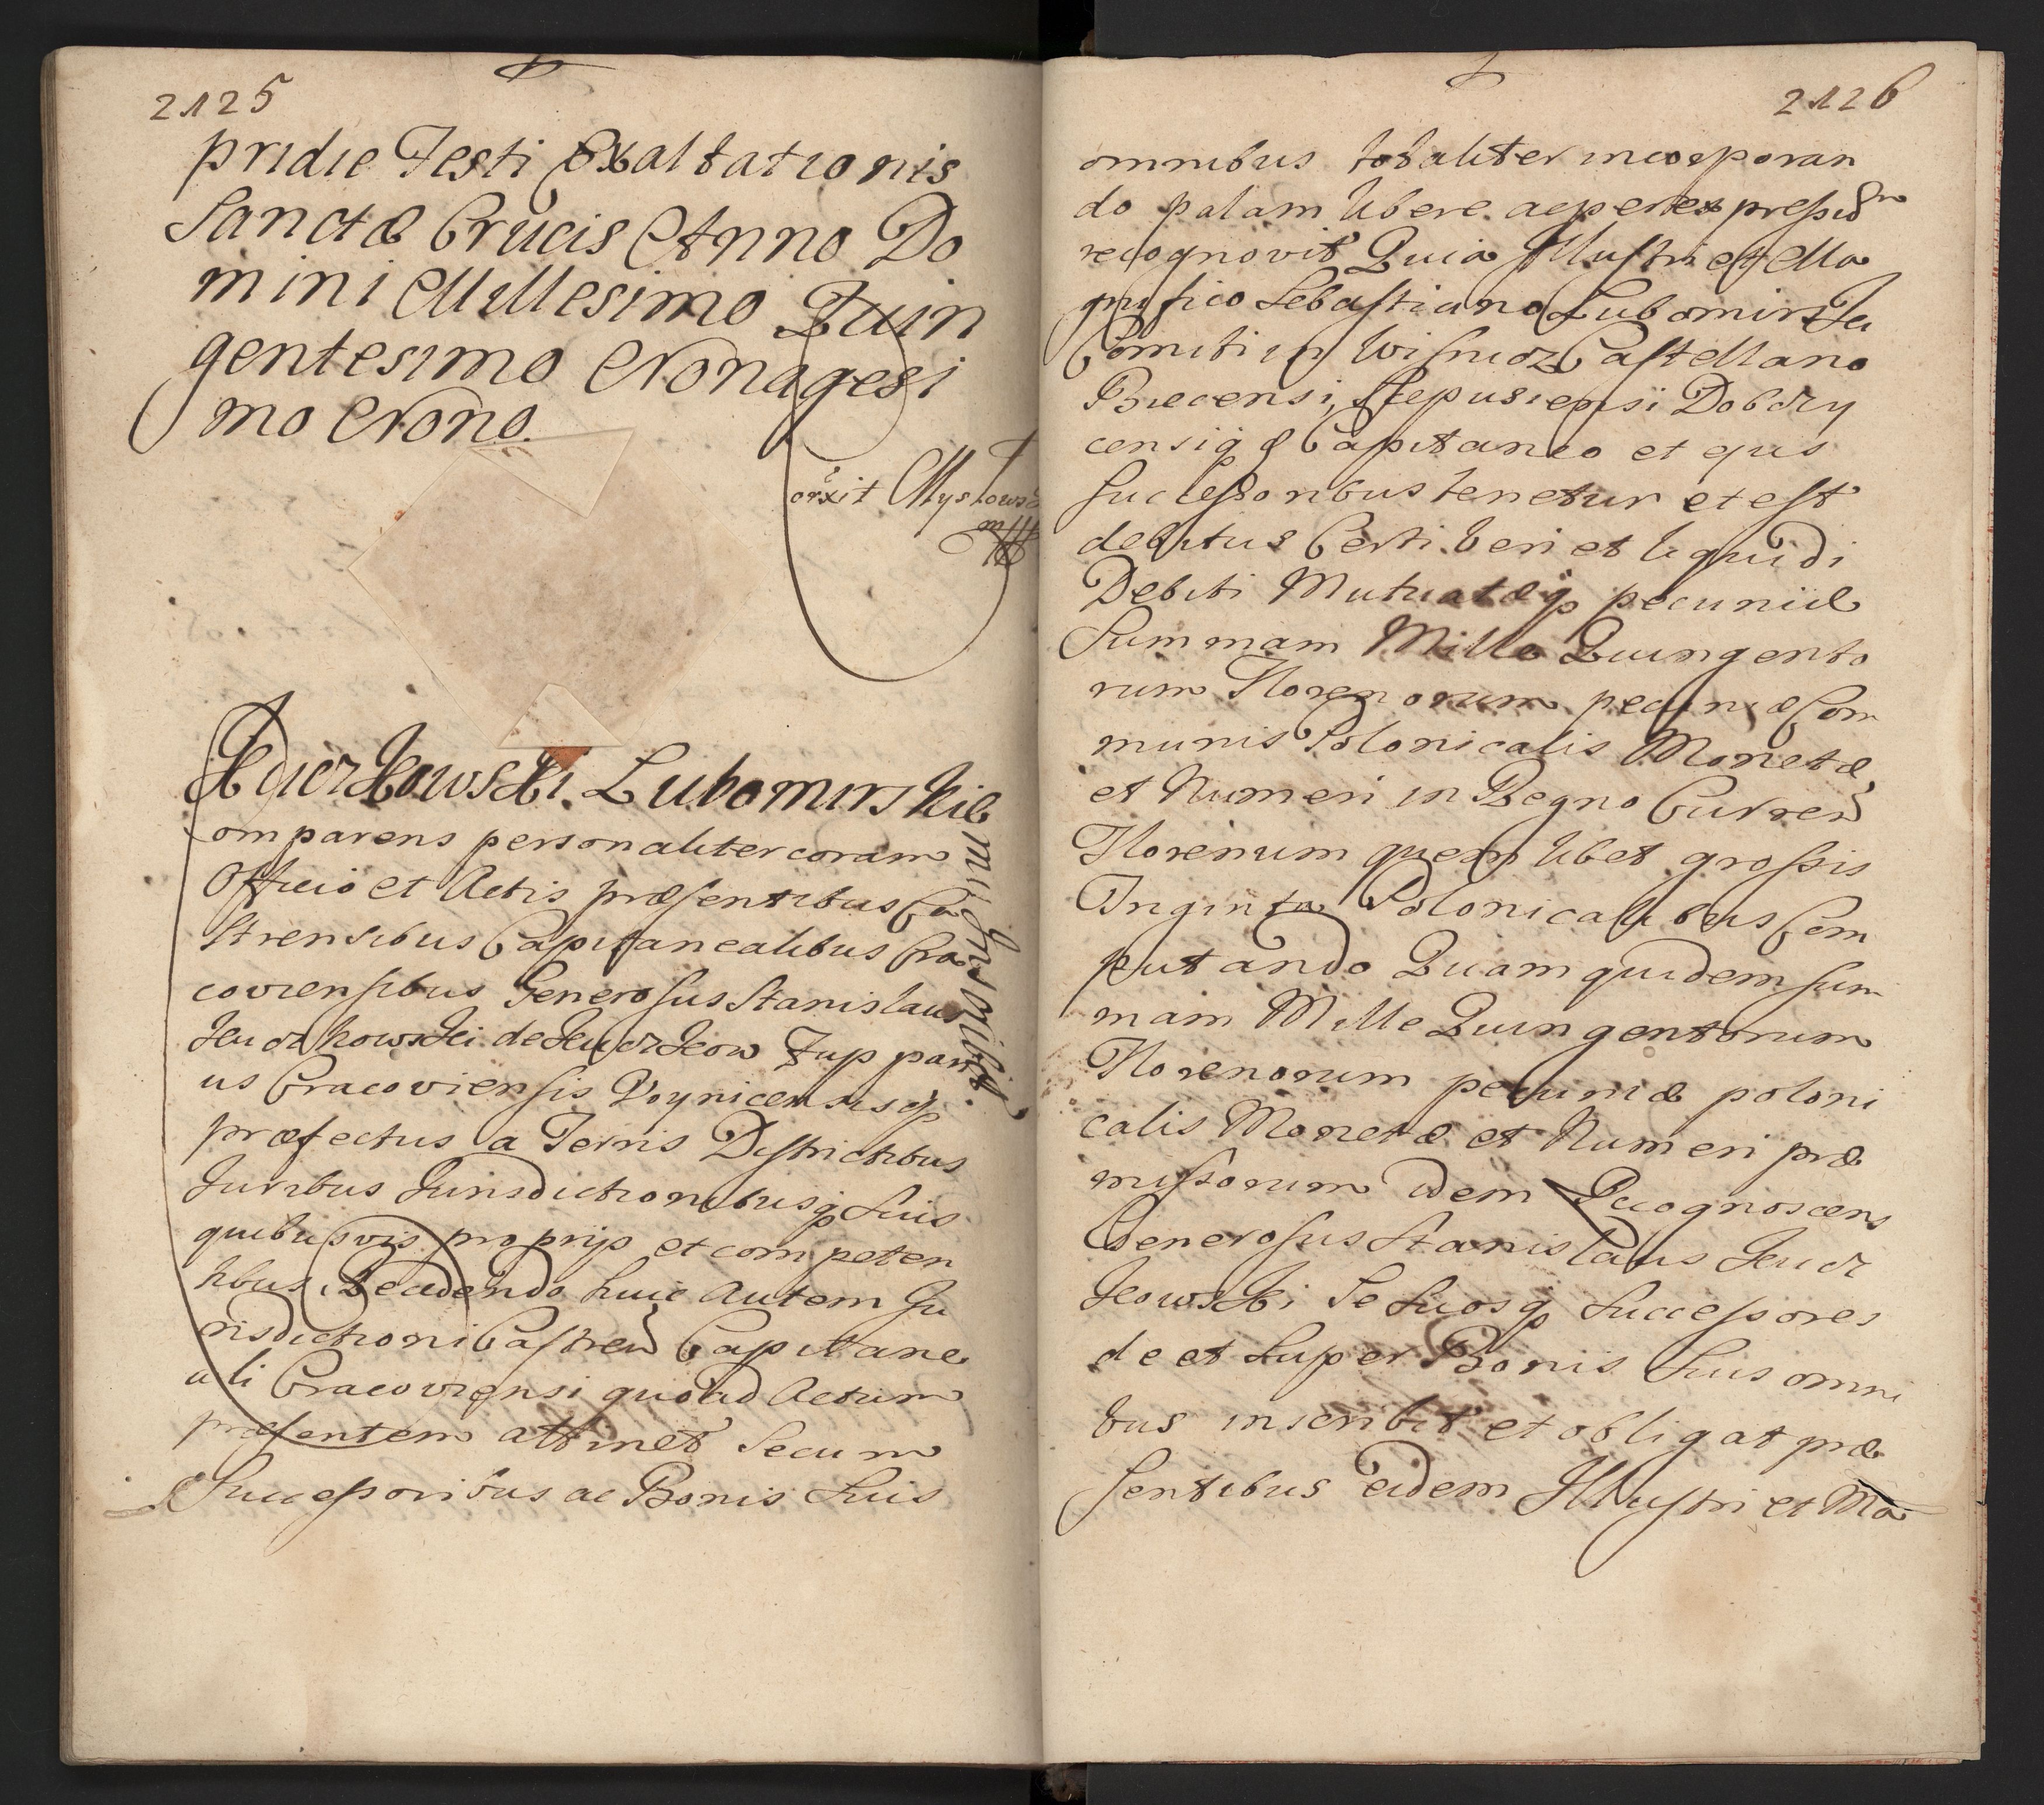 2125
pridie Festi Exaltationis
Sanctæ Crucis Anno Do
mini Millesimo Quin
gentesimo Nonagesi
mo Nono.
Lubomirskie
mu inscribit.
Comparens personaliter coram
Officio et Actis præsentibus Ca
strensibus Capitanealibus Cra
coviensibus Generosus Stanislaus
de Zuppari
us Cracoviensis Voynicensisq
præfectus a Terris Districtibus
Juribus Jurisdictionibusq Suis
quibusvis proprijs et competen
tibus Recedendo huic Autem Ju
risdictioni Castren Capitane
ali Cracoviensi quoad Actum
præsentem attinet Secum
Successoribus ac Bonis Suis
2126
omnibus totaliter incorporan
do palam libere ac per expressum
recognovit Quia Illustri et Ma
gnifico Sebastiano Lubomirski
Comiti in Wisnicz Castellano
Biecensi, Scepusiensi Dobczy
censiq Capitaneo et eius
Successoribus tenetur et est
debitus Certi veri et liquidi
Debiti Mutuatæq pecuniæ
Summam Mille Quingento
rum Florenorum pecuniæ Com
munis Polonicalis Monetæ
et Numeri in Regno Curren
Florenum quemlibet grossis
Triginta Polonicalibus Com
putando Quam quidem Sum
mam Mille Quingentorum
Florenorum pecuniæ poloni
calis Monetæ et Numeri præ
missorum idem Recognoscens
Generosus Stanislaus
Se Suosq Successores
de et Super Bonis Suis omni
bus inscribit et obligat præ
sentibus eidem Illustri et Ma